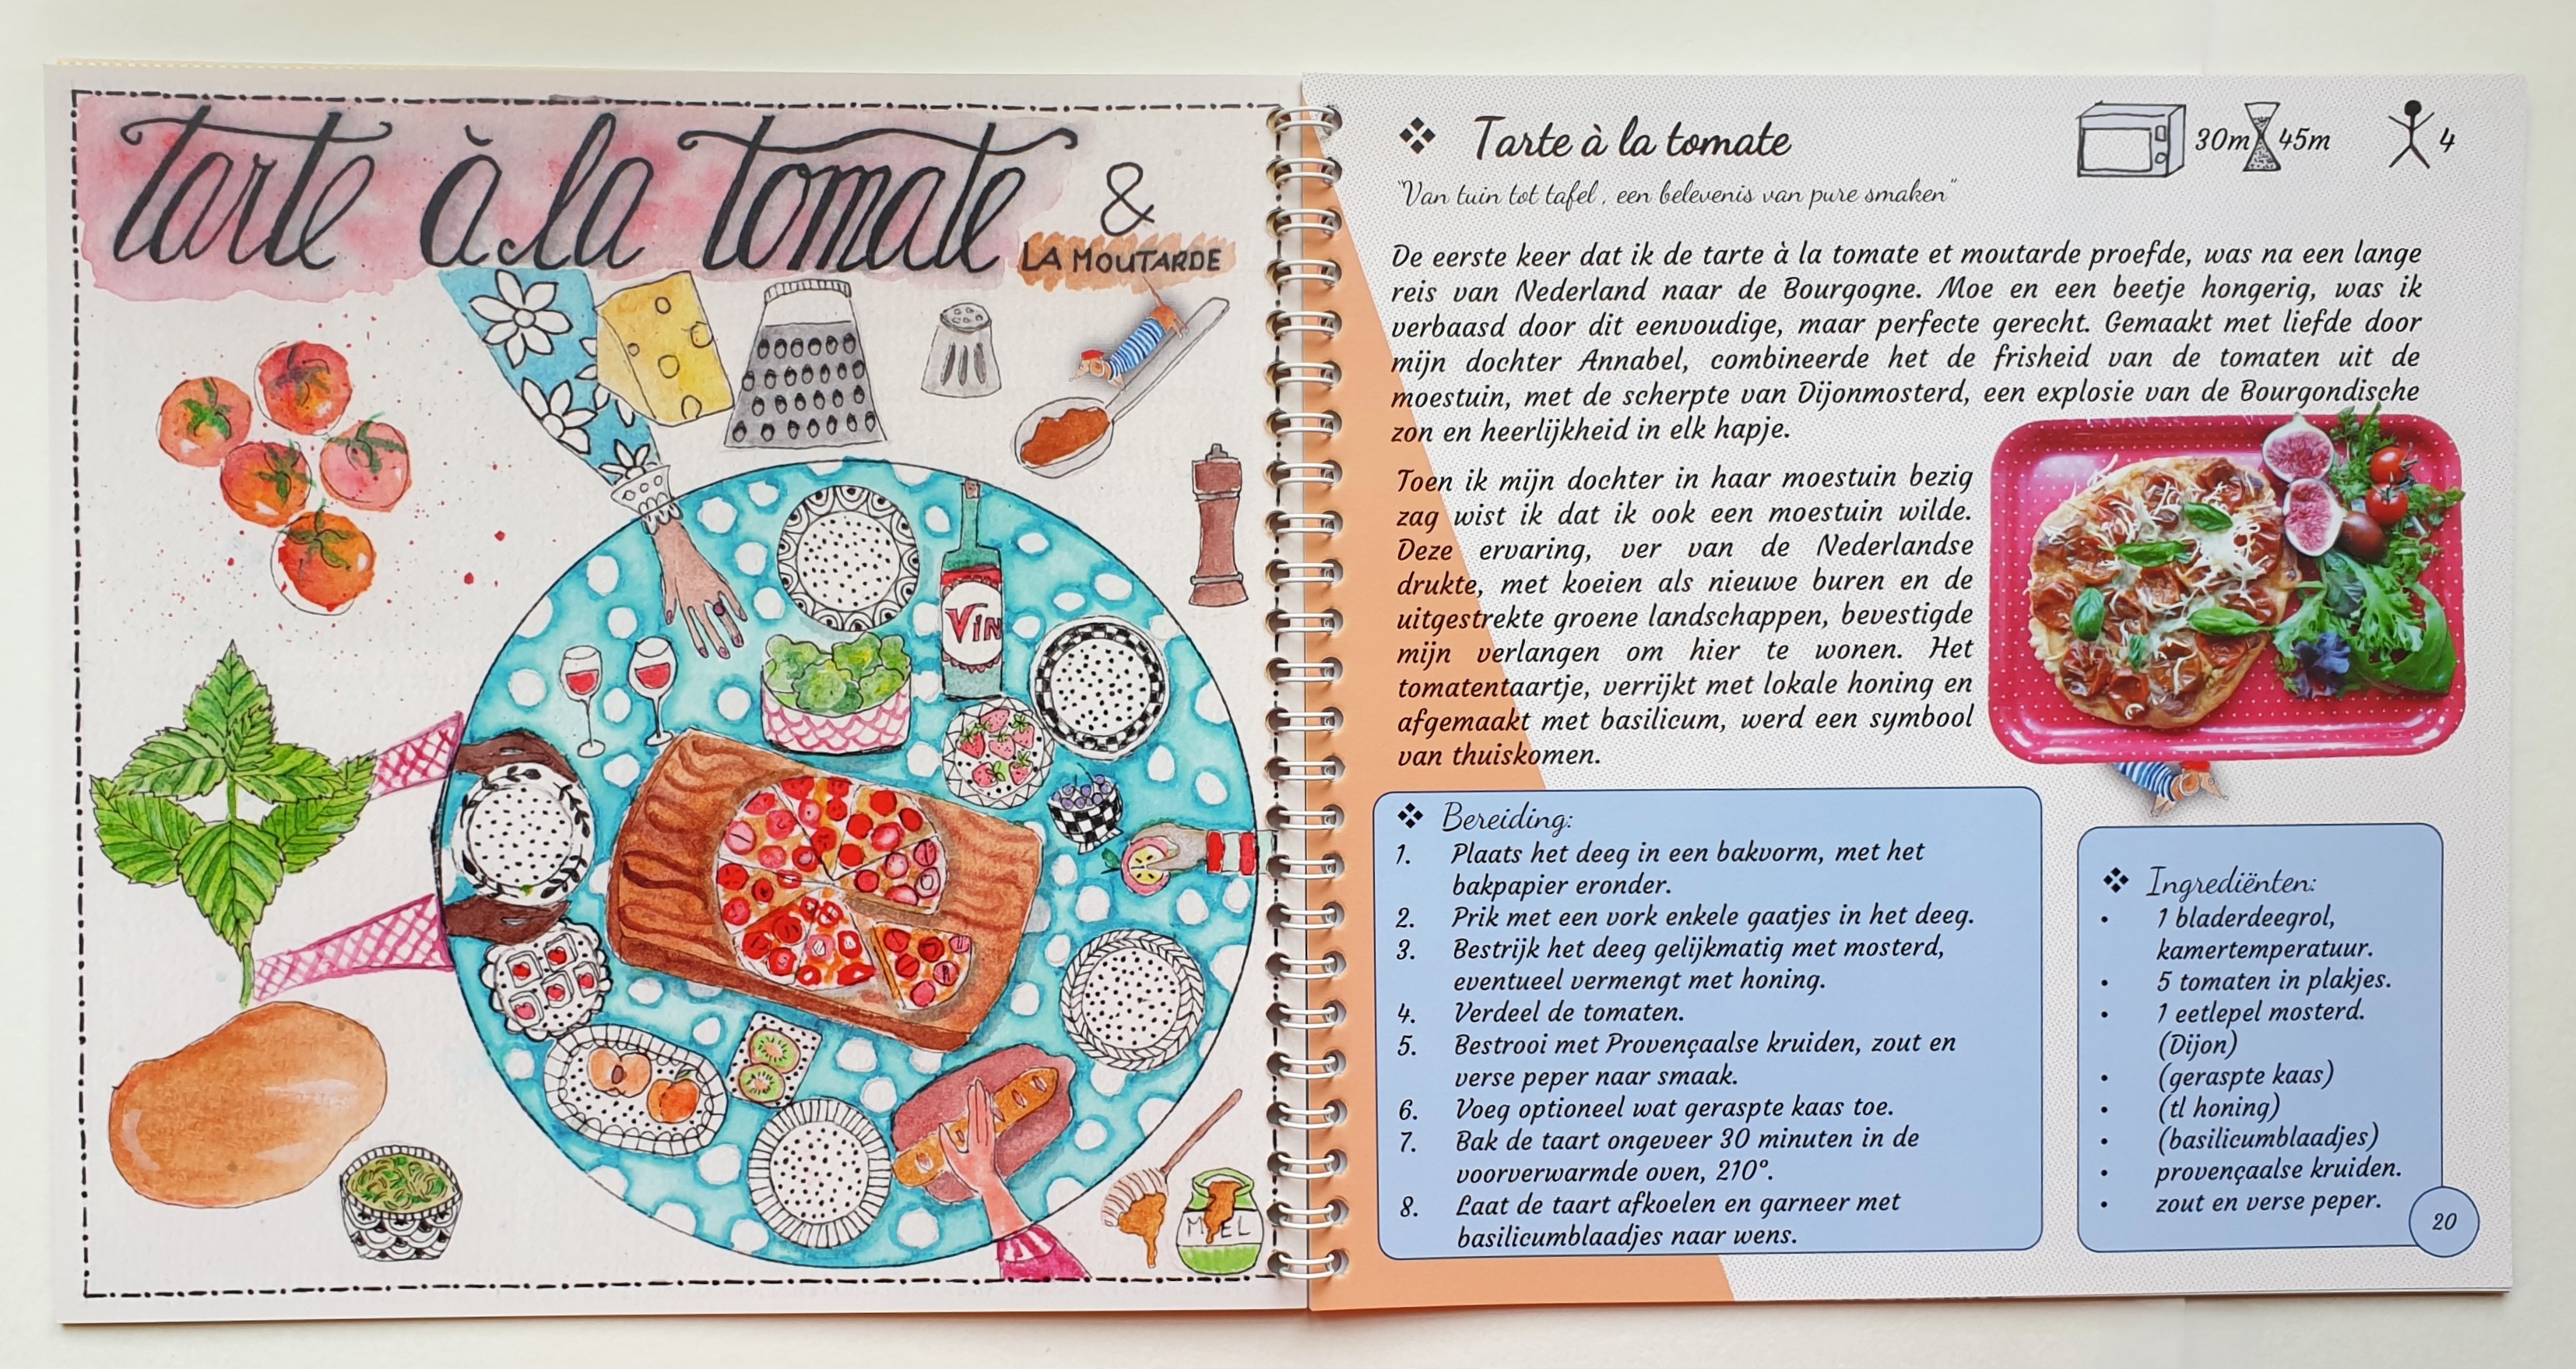 tarte à la tomate
&
LA MOUTARDE
Vin
MIEL
❖ Tarte à la tomate
30m 45m
4
"Van tuin tot tafel, een belevenis van pure smaken"
De eerste keer dat ik de tarte à la tomate et moutarde proefde, was na een lange
reis van Nederland naar de Bourgogne. Moe en een beetje hongerig, was ik
verbaasd door dit eenvoudige, maar perfecte gerecht. Gemaakt met liefde door
mijn dochter Annabel, combineerde het de frisheid van de tomaten uit de
moestuin, met de scherpte van Dijonmosterd, een explosie van de Bourgondische
zon en heerlijkheid in elk hapje.
Toen ik mijn dochter in haar moestuin bezig
zag wist ik dat ik ook een moestuin wilde.
Deze ervaring, ver van de Nederlandse
drukte, met koeien als nieuwe buren en de
uitgestrekte groene landschappen, bevestigde
mijn verlangen om hier te wonen. Het
tomatentaartje, verrijkt met lokale honing en
afgemaakt met basilicum, werd een symbool
van thuiskomen.
❖ Bereiding:
1. Plaats het deeg in een bakvorm, met het
bakpapier eronder.
2. Prik met een vork enkele gaatjes in het deeg.
3. Bestrijk het deeg gelijkmatig met mosterd,
eventueel vermengt met honing.
4. Verdeel de tomaten.
5. Bestrooi met Provençaalse kruiden, zout en
verse peper naar smaak.
6. Voeg optioneel wat geraspte kaas toe.
7. Bak de taart ongeveer 30 minuten in de
voorverwarmde oven, 210°.
8. Laat de taart afkoelen en garneer met
basilicumblaadjes naar wens.
❖ Ingrediënten:
• 1 bladerdeegrol,
kamertemperatuur.
• 5 tomaten in plakjes.
• 1 eetlepel mosterd.
(Dijon)
• (geraspte kaas)
• (tl honing)
• (basilicumblaadjes)
• provençaalse kruiden.
• zout en verse peper.
20